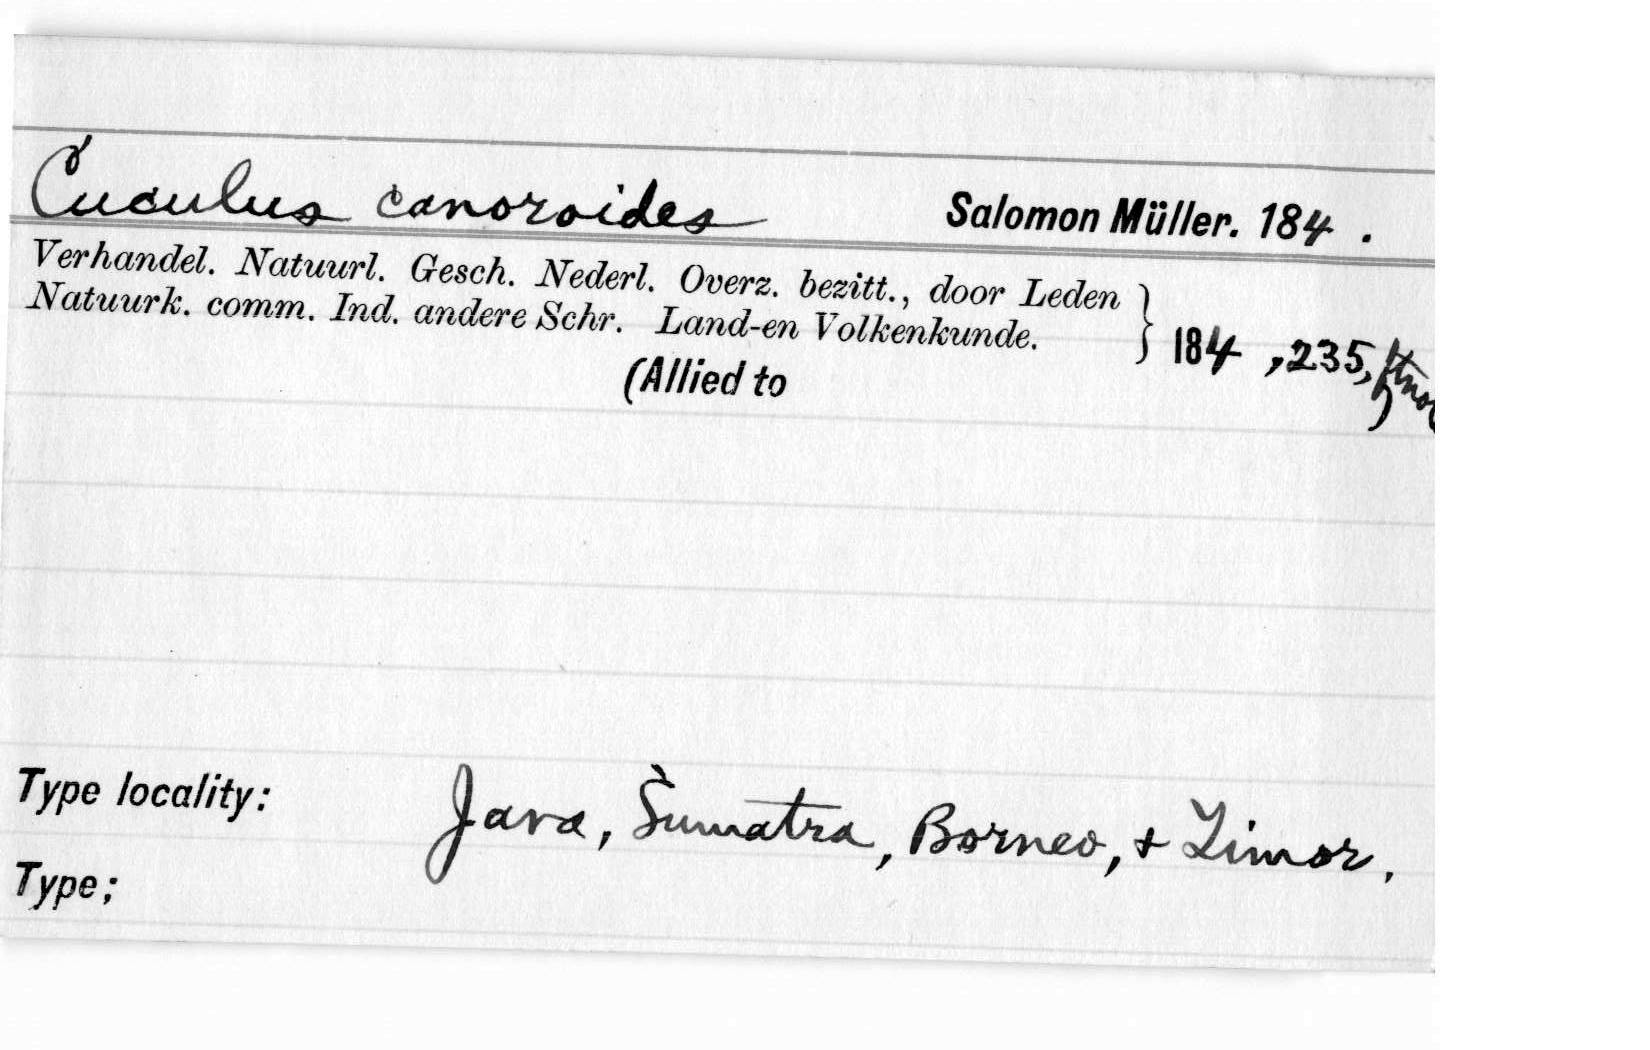 Cuculus canoroides Salomon Müller. 184 .
Verhandel. Natuurl. Gesch. Nederl. Overz. bezitt., door Leden
Natuurk. comm. Ind. andere Schr. Land-en Volkenkunde. } 184 , 235,
(Allied to
Type locality: Java, Sumatra, Borneo, + Timor.
Type;